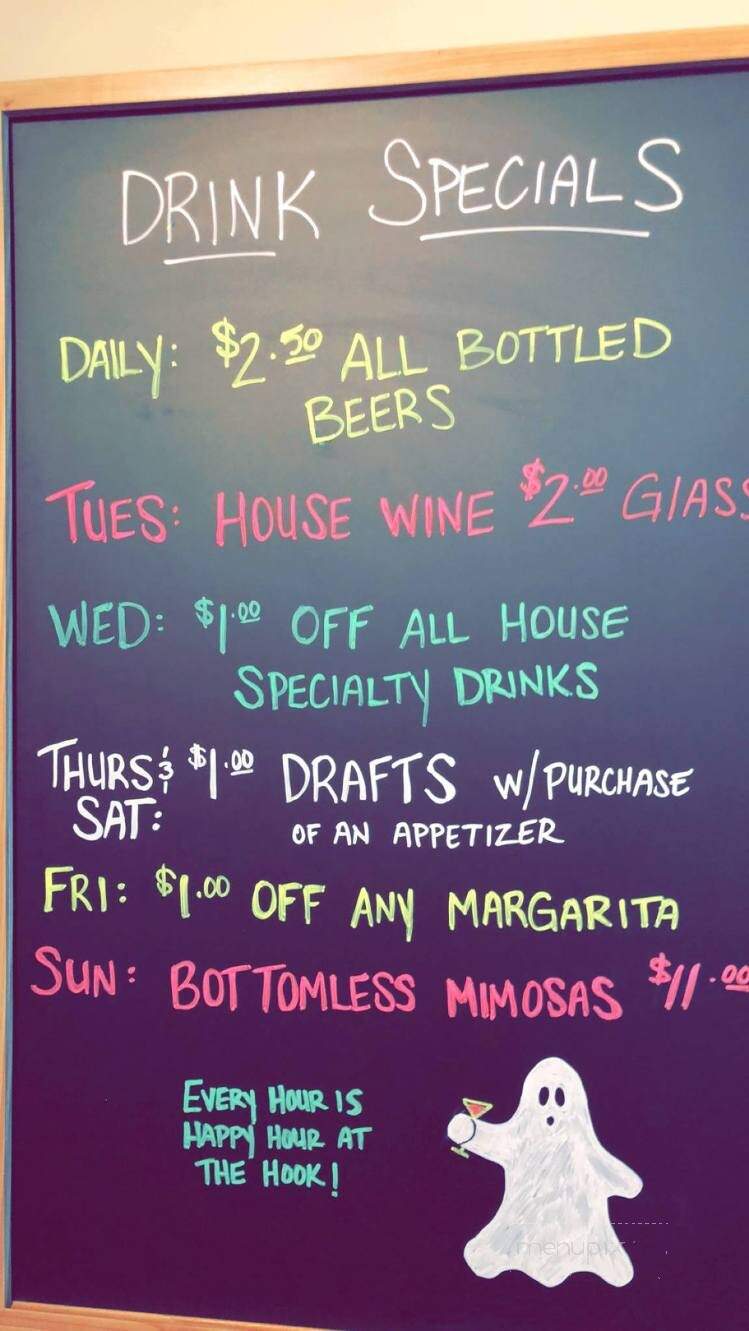 DRINK SPECIALS
DAILY: $2.50 ALL BOTTLED
BEERS
TUES: HOUSE WINE $2.00 GLASS
WED: $1.00 OFF ALL HOUSE
SPECIALTY DRINKS
THURS & $1.00 DRAFTS W/PURCHASE
SAT: OF AN APPETIZER
FRI: $1.00 OFF ANY MARGARITA
SUN: BOTTOMLESS MIMOSAS $11.00
EVERY HOUR IS
HAPPY HOUR AT
THE HOOK!
menupix